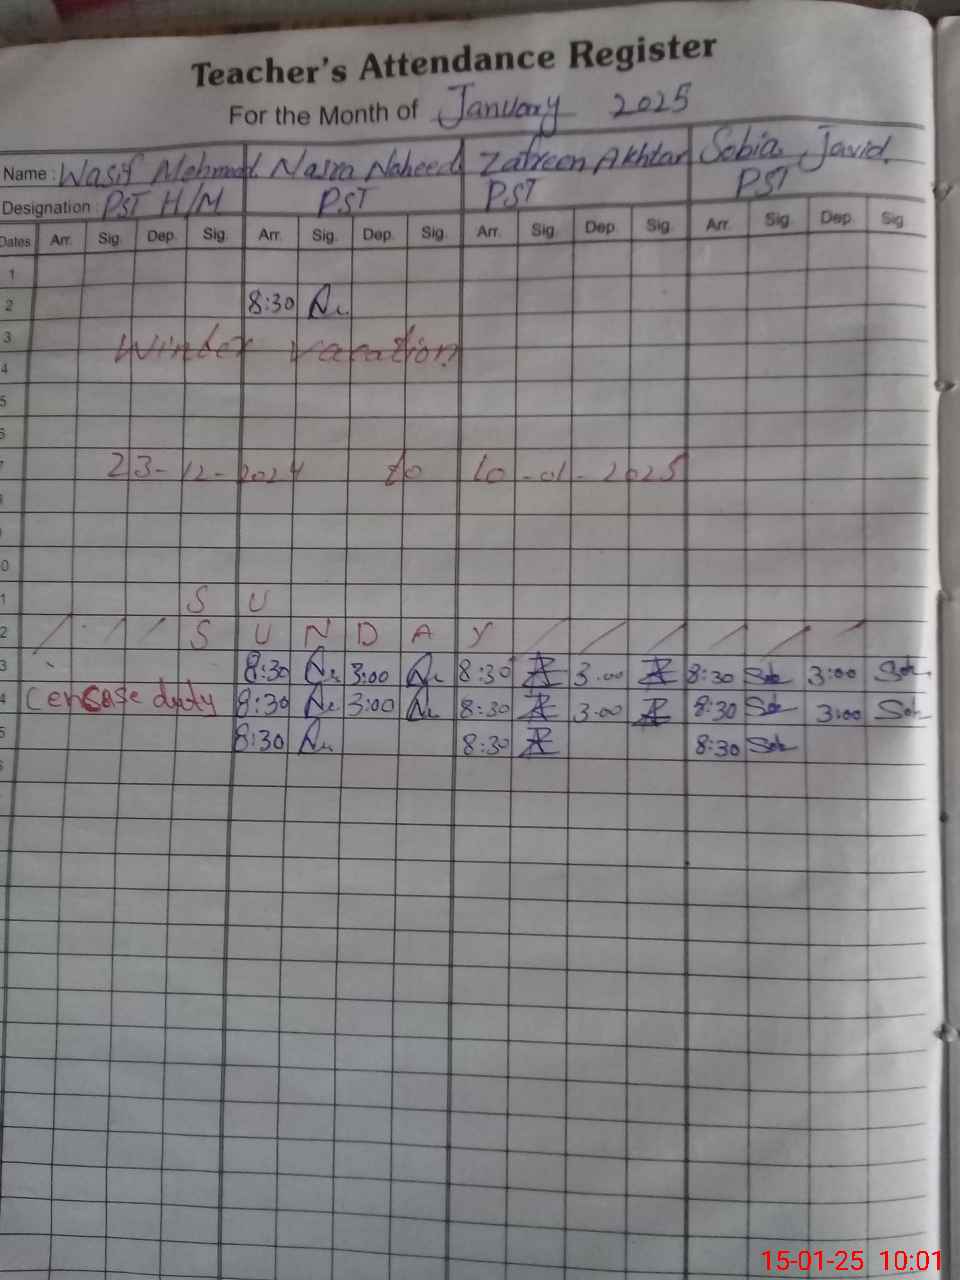 Teacher's Attendance Register
For the Month of January 2025
Name: Wasif Mehmood Nasra Naheed Zafreen Akhtar Sobia Javid
Designation PST H/M PST PST PST
Dates Arr. Sig. Dep. Sig. Arr. Sig. Dep. Sig. Arr. Sig. Dep. Sig. Arr. Sig. Dep. Sig.
1
2 8:30
3
Winter vacation
4
5
6
7 23-12-2024 to 10-01-2025
0
1 S U
2 S U N D A Y
3 8:30 3:00 8:30 3.00 8:30 Sob 3:00 Sob
4 Cencase duty 8:30 3:00 8:30 3.00 8:30 Sob 3:00 Sob
5 8:30 8:30 8:30 Sob
15-01-25 10:01